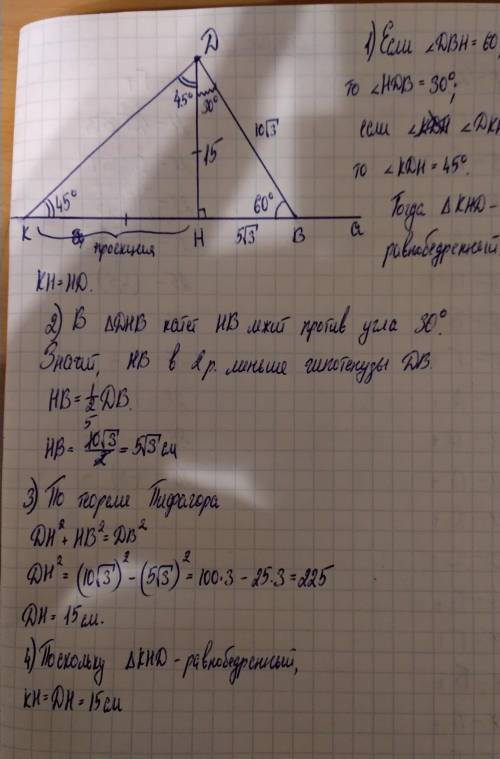 D
45°
30°
10√3
15
45°
60°
K
проекция
H
5√3
B
a
1) Если ∠DBH = 60
то ∠HDB = 30°;
если ∠DKH
то ∠KDH = 45°.
Тогда ΔKHD -
равнобедренный
KH = HD.
2) В ΔDHB катет HB лежит против угла 30°.
Значит, HB в 2 р. меньше гипотенузы DB.
HB = 1/2 DB.
HB = 10√3/2 = 5√3 см
3) По теореме Пифагора
DH² + HB² = DB²
DH² = (10√3)² - (5√3)² = 100·3 - 25·3 = 225
DH = 15 см.
4) Поскольку ΔKHD - равнобедренный,
KH = DH = 15 см